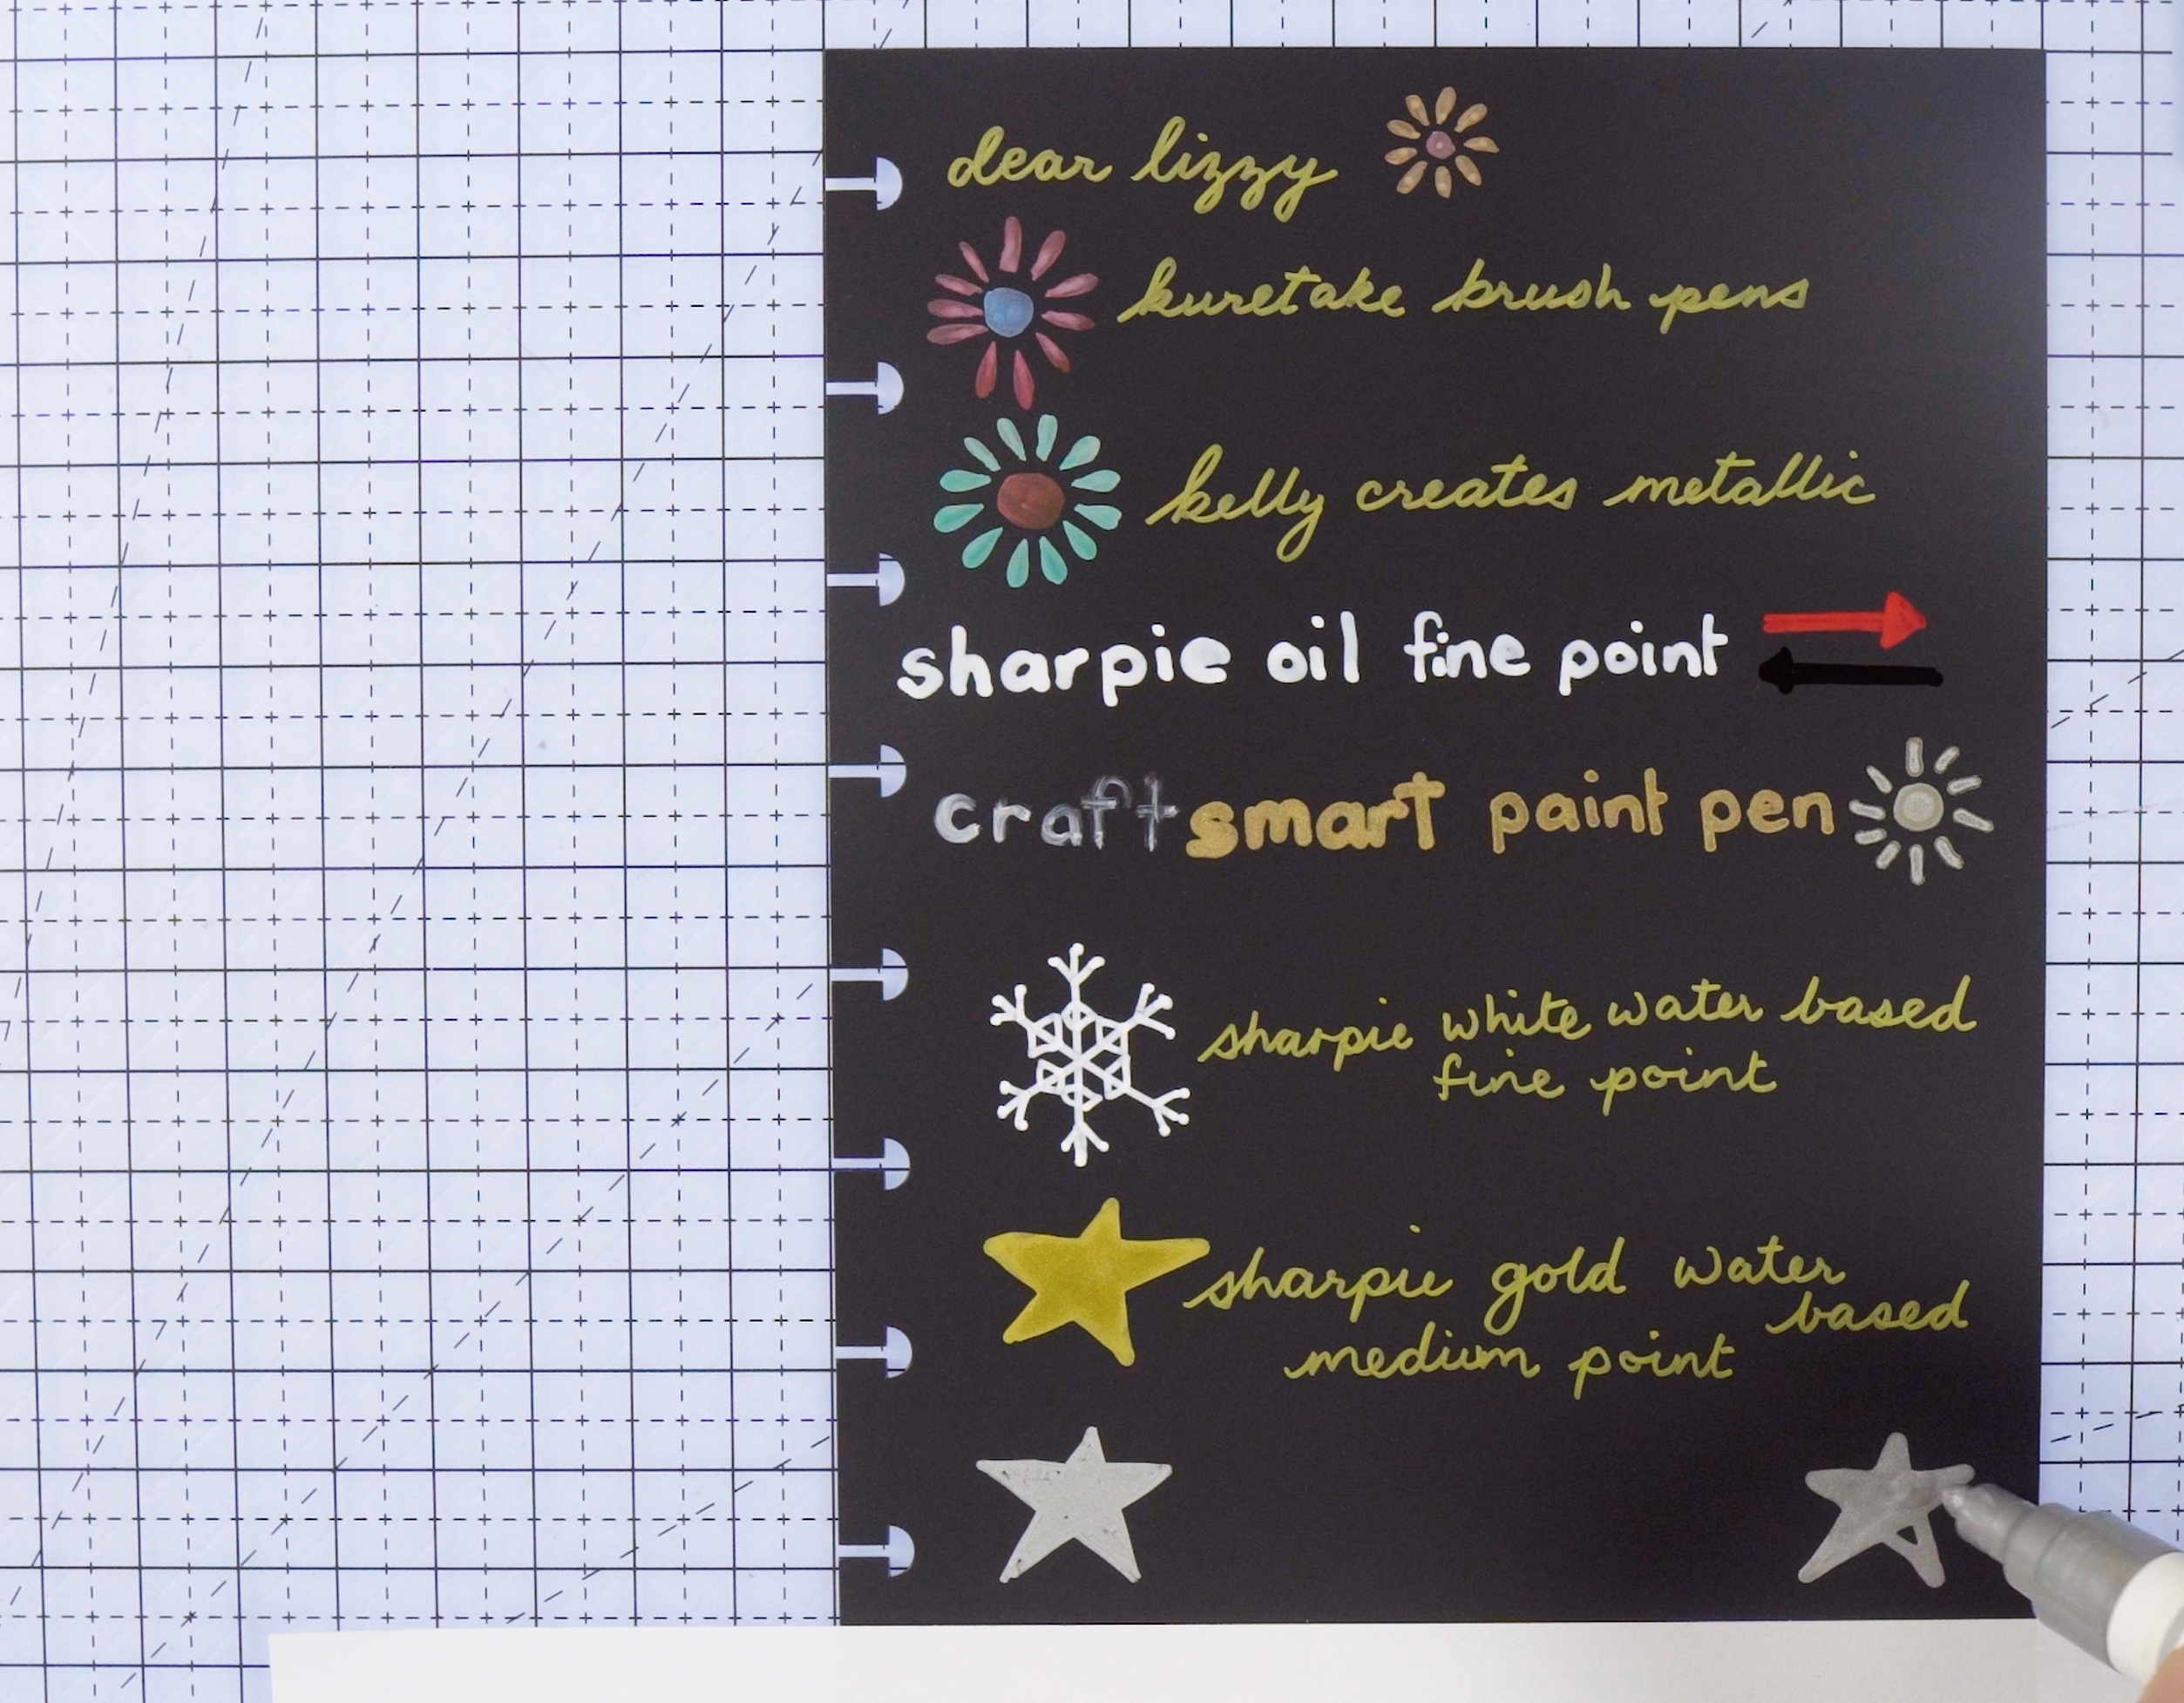 dear lizzy
kuretake brush pens
kelly creates metallic
sharpie oil fine point
craftsmart paint pen
sharpie white water based
fine point
sharpie gold water
based
medium point